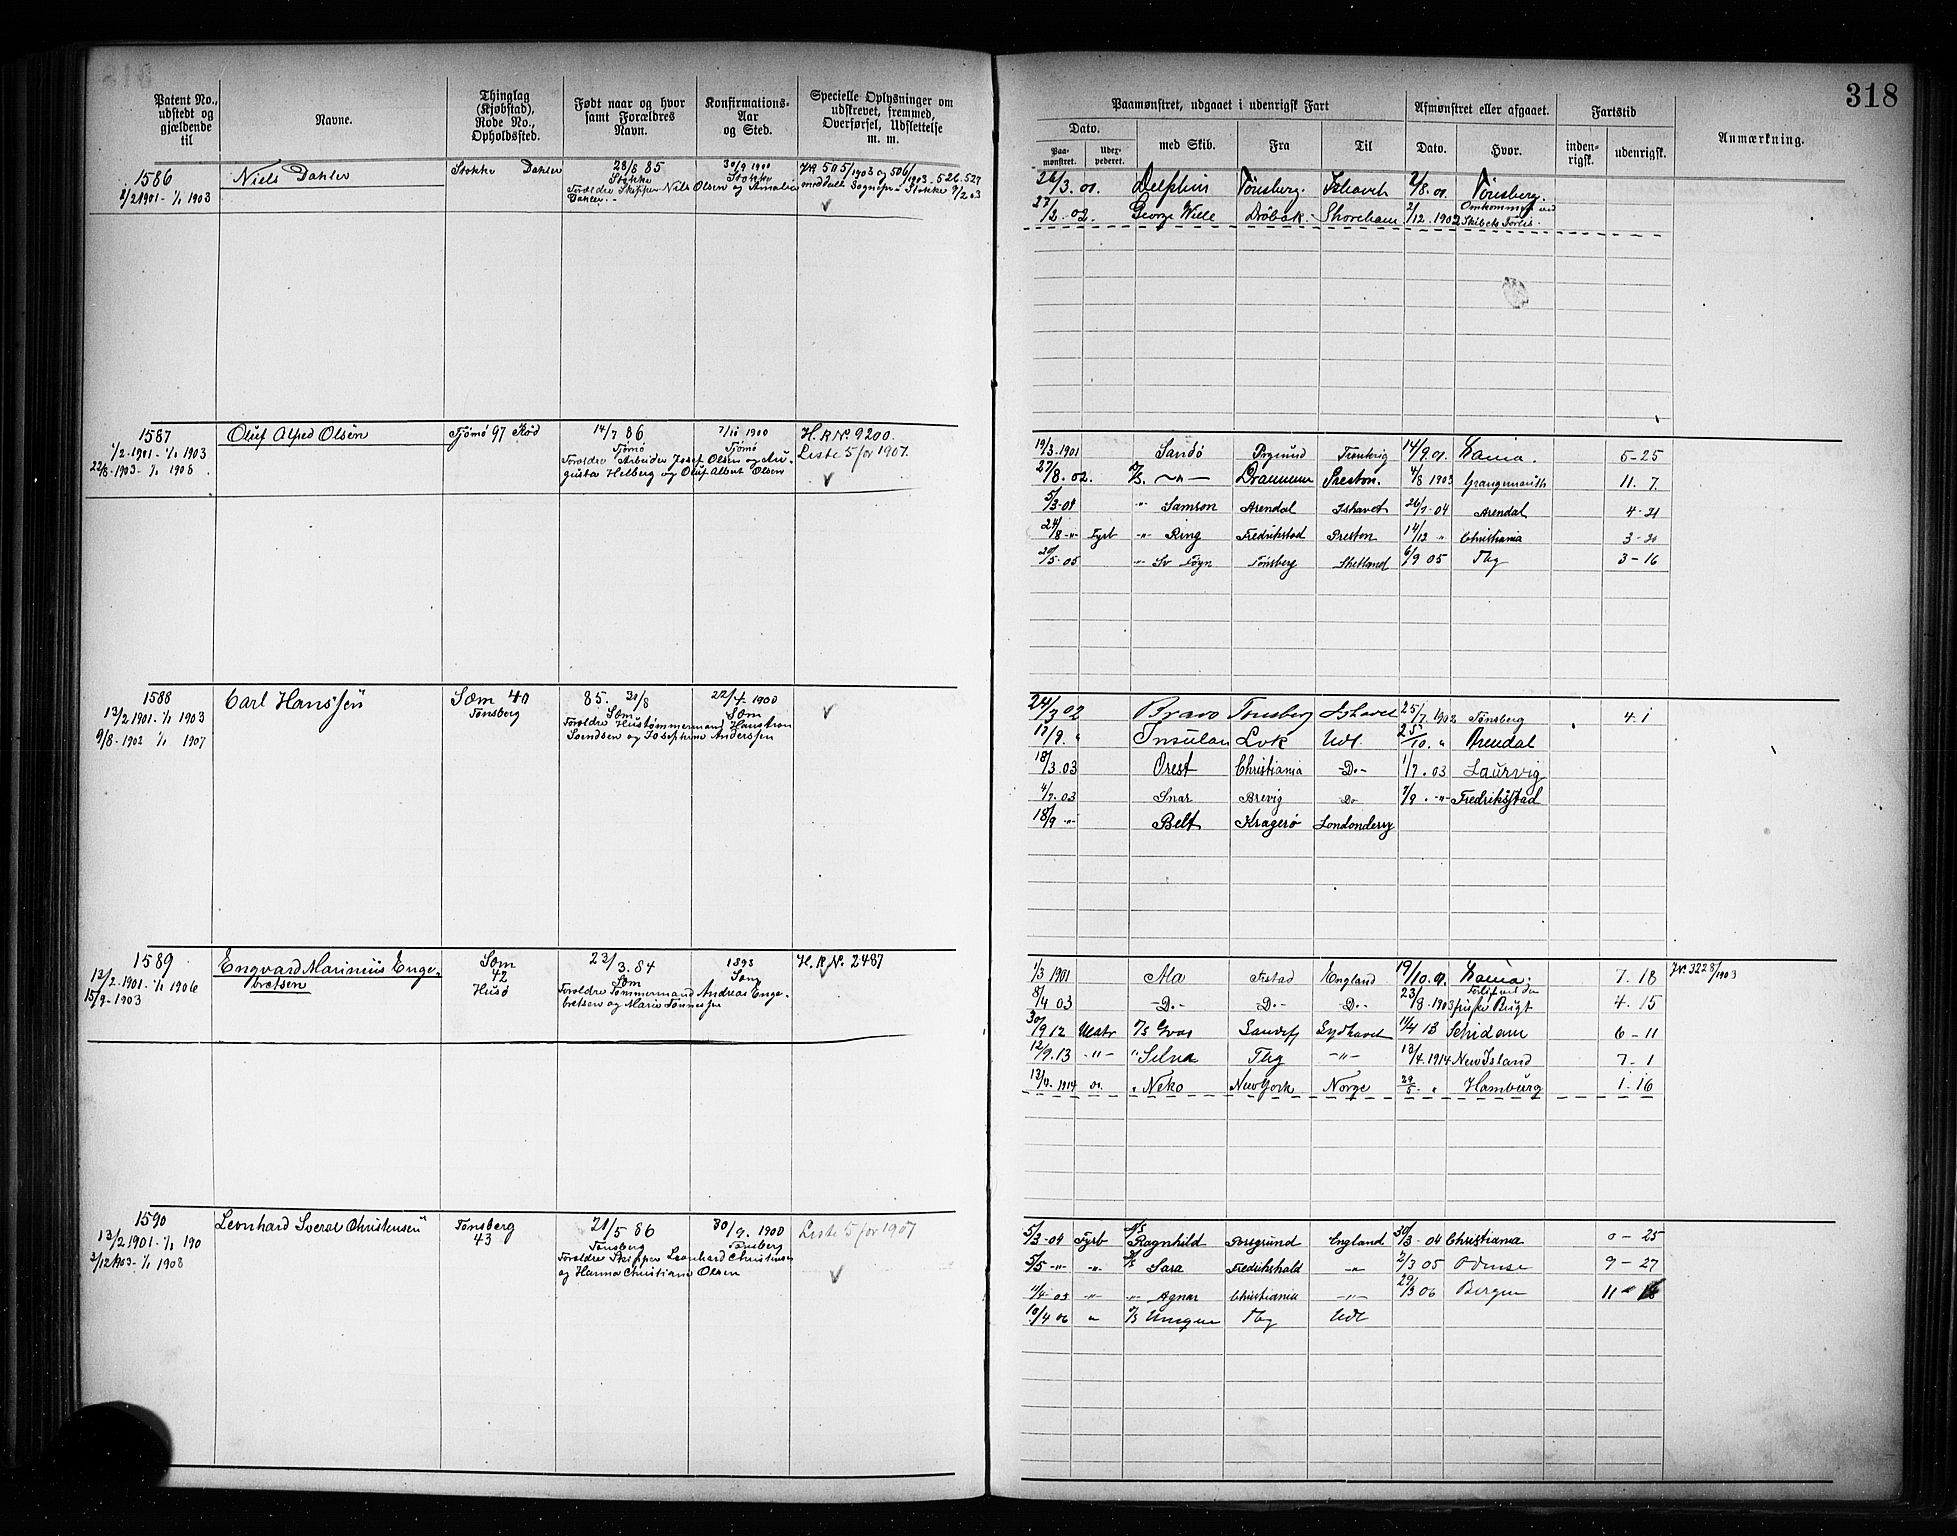 318
Patent No., udstedt og gjældende til
Navne.
Thinglag (Kjøbstad), Rode No., Opholdssted.
Født naar og hvor samt Forældres Navn.
Konfirmations- Aar og Sted.
Specielle Oplysninger om udskrevet, fremmed, Overførsel, Udslettelse m. m.
Paamønstret, udgaaet i udenrigsk Fart
Afmønstret eller afgaaet.
Fartstid
Anmærkning.
Dato.
Paa- mønstret.
med Skib.
Fra
Til
Dato.
Hvor.
inden- rigsk.
udenrigsk.
1586
Niels Dahler
Stokke Dahler
28/8 85
Stokke
Forældre Skipper Niels Olsen og Amalie
Dahler.-
30/9 1900
Stokke
1/2 1901 - 1/1 1903
26/3. 01. Delphin Tønsberg. Ishavet 2/8. 01 Tönsberg.
27/2. 02. George Wiele Dröbak. Shoreham 2/12. 1902 Omkommen ved
Skibets Forlis.
1587
Oluf Alfred Olsen
Tjömö 97 Kød
14/7 86
Tjömö
Forældre Arbeider Josef Olsen og Au-
gusta Helberg og Oluf Albert Olsen
7/10 1900
Tjömö
H. R. No. 9200.
Liste 5 for 1907.
1/2 - 1901 - 1/1 1903
22/8 - 1903 - 1/1 1908
19/3. 1901 Sandö 14/9. 01. 5-25
27/8. 02. Drammen Preston. 4/8 1903 11. 7.
5/3-04 -"- Samson Arendal Ishavet 26/7-04 Arendal 4-21
24/8 -"- Fyrb -"- Ring Fredrikstad Preston 14/12 " Christiania
20/5-05 -"- Sv Föyn Tønsberg Shetland 6/9 05 Tbg 3-16
1588
Carl Hanssen
Sæm 40
Tønsberg
85. 31/8
Sæm
Forældre Hustømmermand Hans Iver
Svendsen og Josephine Anderssen
22/4 - 1900
Sæm
13/2 1901 - 1/1 1903
9/8 - 1902 1/1 1907
24/3 02 Bravo Tønsberg Ishavet 25/7. 1902 Tønsberg 4. 1
17/9. " Insulan Lvk Udl. 25/10. " Arendal
18/3. 03 Orest Christiania -D.- 1/7. 03 Laurvig
4/7. 03 Snar Brevig Do 7/9. -"- Fredriksstad
18/9 -"- Belt Kragerø Londonderry
1589
Engvard Marinius Enge-
bretsen
Sæm
42
Husö
23/3. 84
Sæm
Forældre Tømmermand Andreas Enge-
bretsen og Marie Tønnessen
1898
Sæm
H. R. No. 2487
13/2 - 1901 - 1/1 1906
15/9 - 1903
1/3 1901 Ala Frstad England 19/10. 01. 7. 18
J.Nr. 3228/1903
8/4 03 -D.- -D.- -D.- 23/8 - 1903 4. 15
30/9 12 Matr Gvas Sandefj Sydhavet 11/4 13 Schidam 6-11
12/9. 13 -"- " Selva Tbg -"- 13/4. 1914 New Island 7-1
13/4. 1914 " Neko New York Norge 29/5. " Hamburg 1. 16
1590
Leonhard Sverre Christensen
Tønsberg
43
21/5 86
Tønsberg
Forældre Skipper Leonhard Christensen
og Hanna Christiane Olsen
30/9. 1900
Tønsberg
Liste 5 for 1907
13/2 1901 - 1/1 190
3/12 1903 - 1/1 1908
5/3-04 Fyrb Ragnhild Porsgrund England 30/3-04 Christiania 0-25
5/5 -"- -"- Sara Fredrikshald -"- 2/3 05 Odense 9-27
11/4-05 -"- -"- Agnar Christiania -"- 29/3 06 Bergen
10/4 06 " Unique Tbg Udl